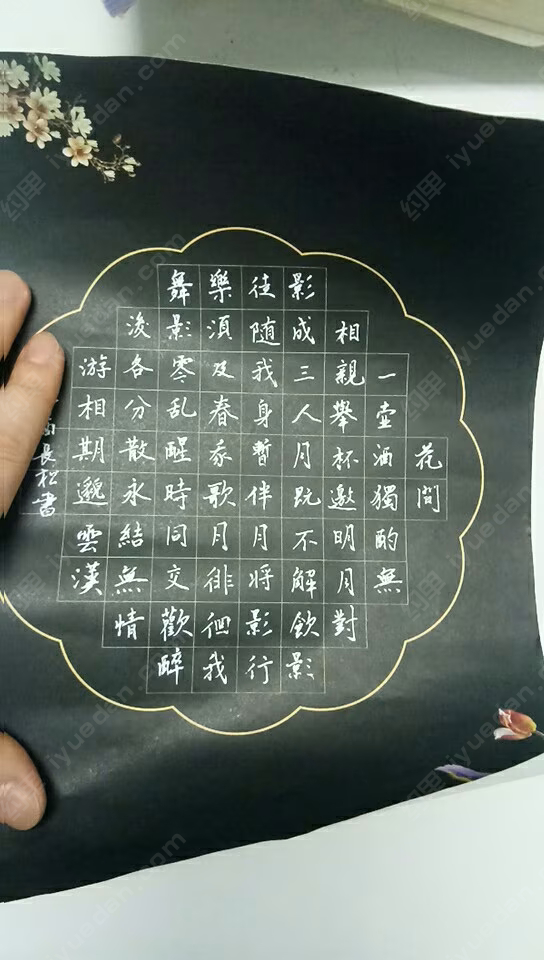 花間
一壺酒獨酌無
相親舉杯邀明月對
影成三人月既不解飲影
徒随我身暫伴月將影行
樂須及春我歌月徘徊我
舞影零乱醒時同交歡醉
後各分散永結無情
游相期邈雲漢
長松書
iyuedan.com